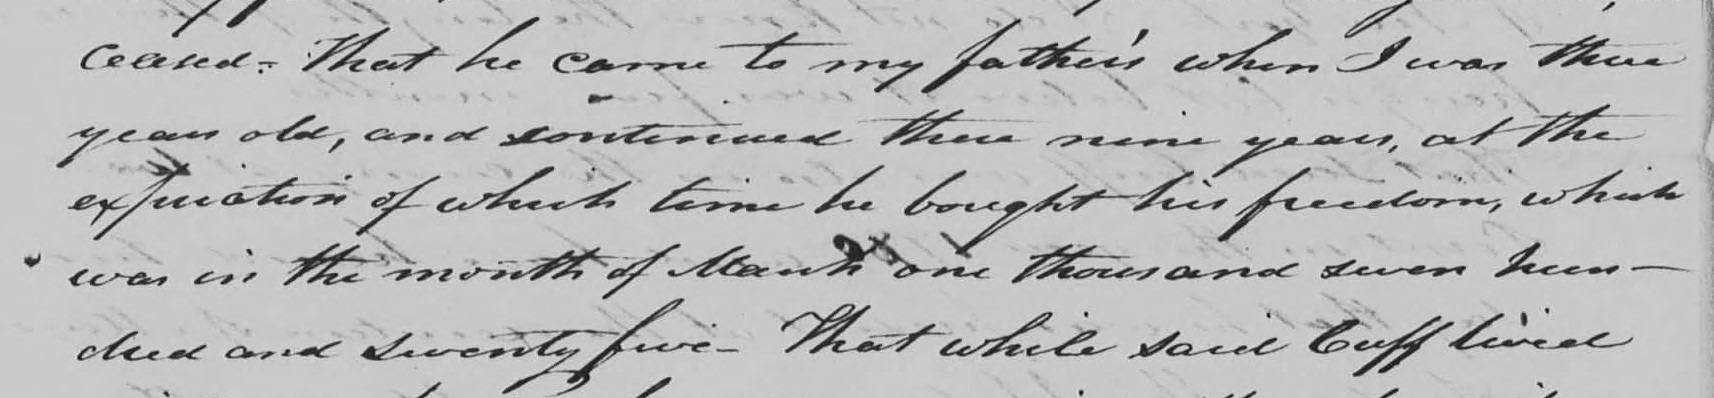 ceased - That he came to my father's when I was three
years old, and continued there nine years, at the
expiration of which time he bought his freedom, which
was in the month of March one thousand seven hun-
dred and seventy five - That while said Cuff lived